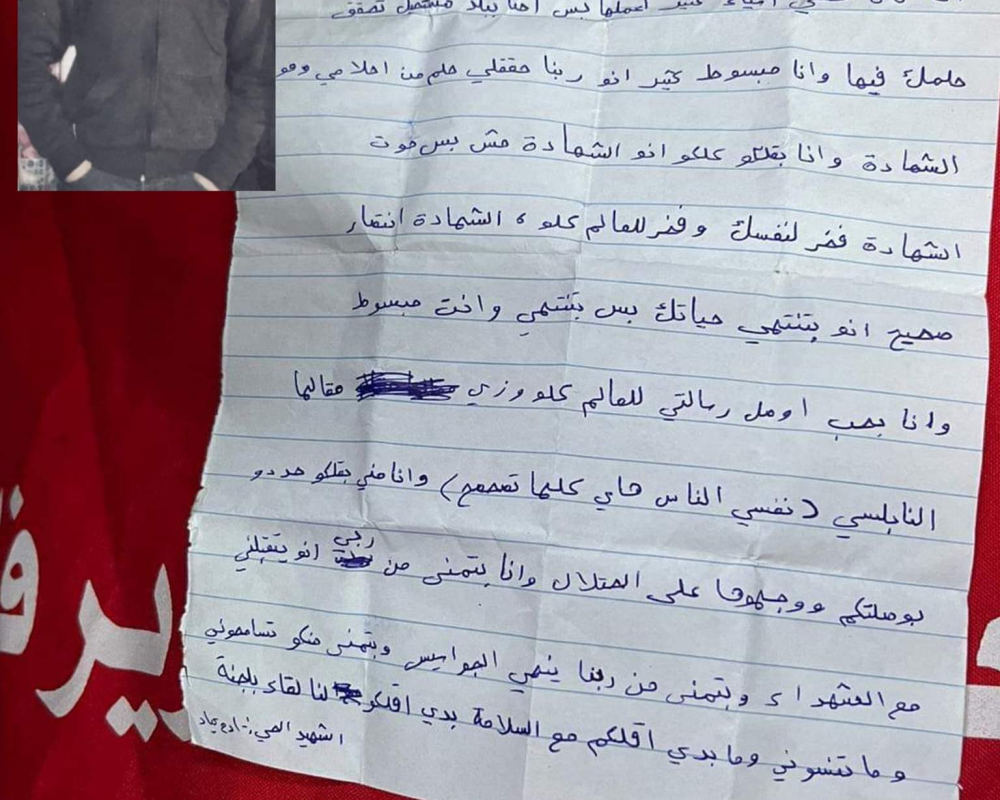 كتير اعملها بس احنا ببلد مستحيل تحقق
حلمك فيها وانا مبسوط كتير انو ربنا حققلي حلم من احلامي وهو
الشهادة وانا بقلكو كلكو انو الشهادة مش بس موت
الشهادة فخر لنفسك وفخر للعالم كلو ، الشهادة انتصار
صحيح انو بتنتهي حياتك بس بتنتهي وانت مبسوط
وانا بحب اوصل رسالتي للعالم كلو وزي مقالها
النابلسي (نفسي الناس هاي كلها تصحصح) وانا مني بقلكو حددو
بوصلتكم ووجهوها على المحتلال وانا بتمنى من ربي انو يتقبلني
مع الشهداء وبتمنى من ربنا ينهي الجواسيس وبتمنى منكو تسامحوني
وما تنسوني وما بدي اقلكم مع السلامة بدي اقلكو لنا لقاء بالجنة
الشهيد الحي:-
يرف